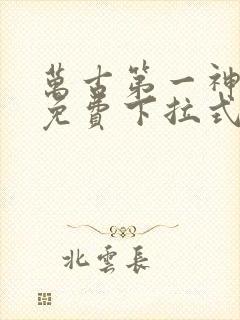 萬古第一神
免費下拉式
北雲長